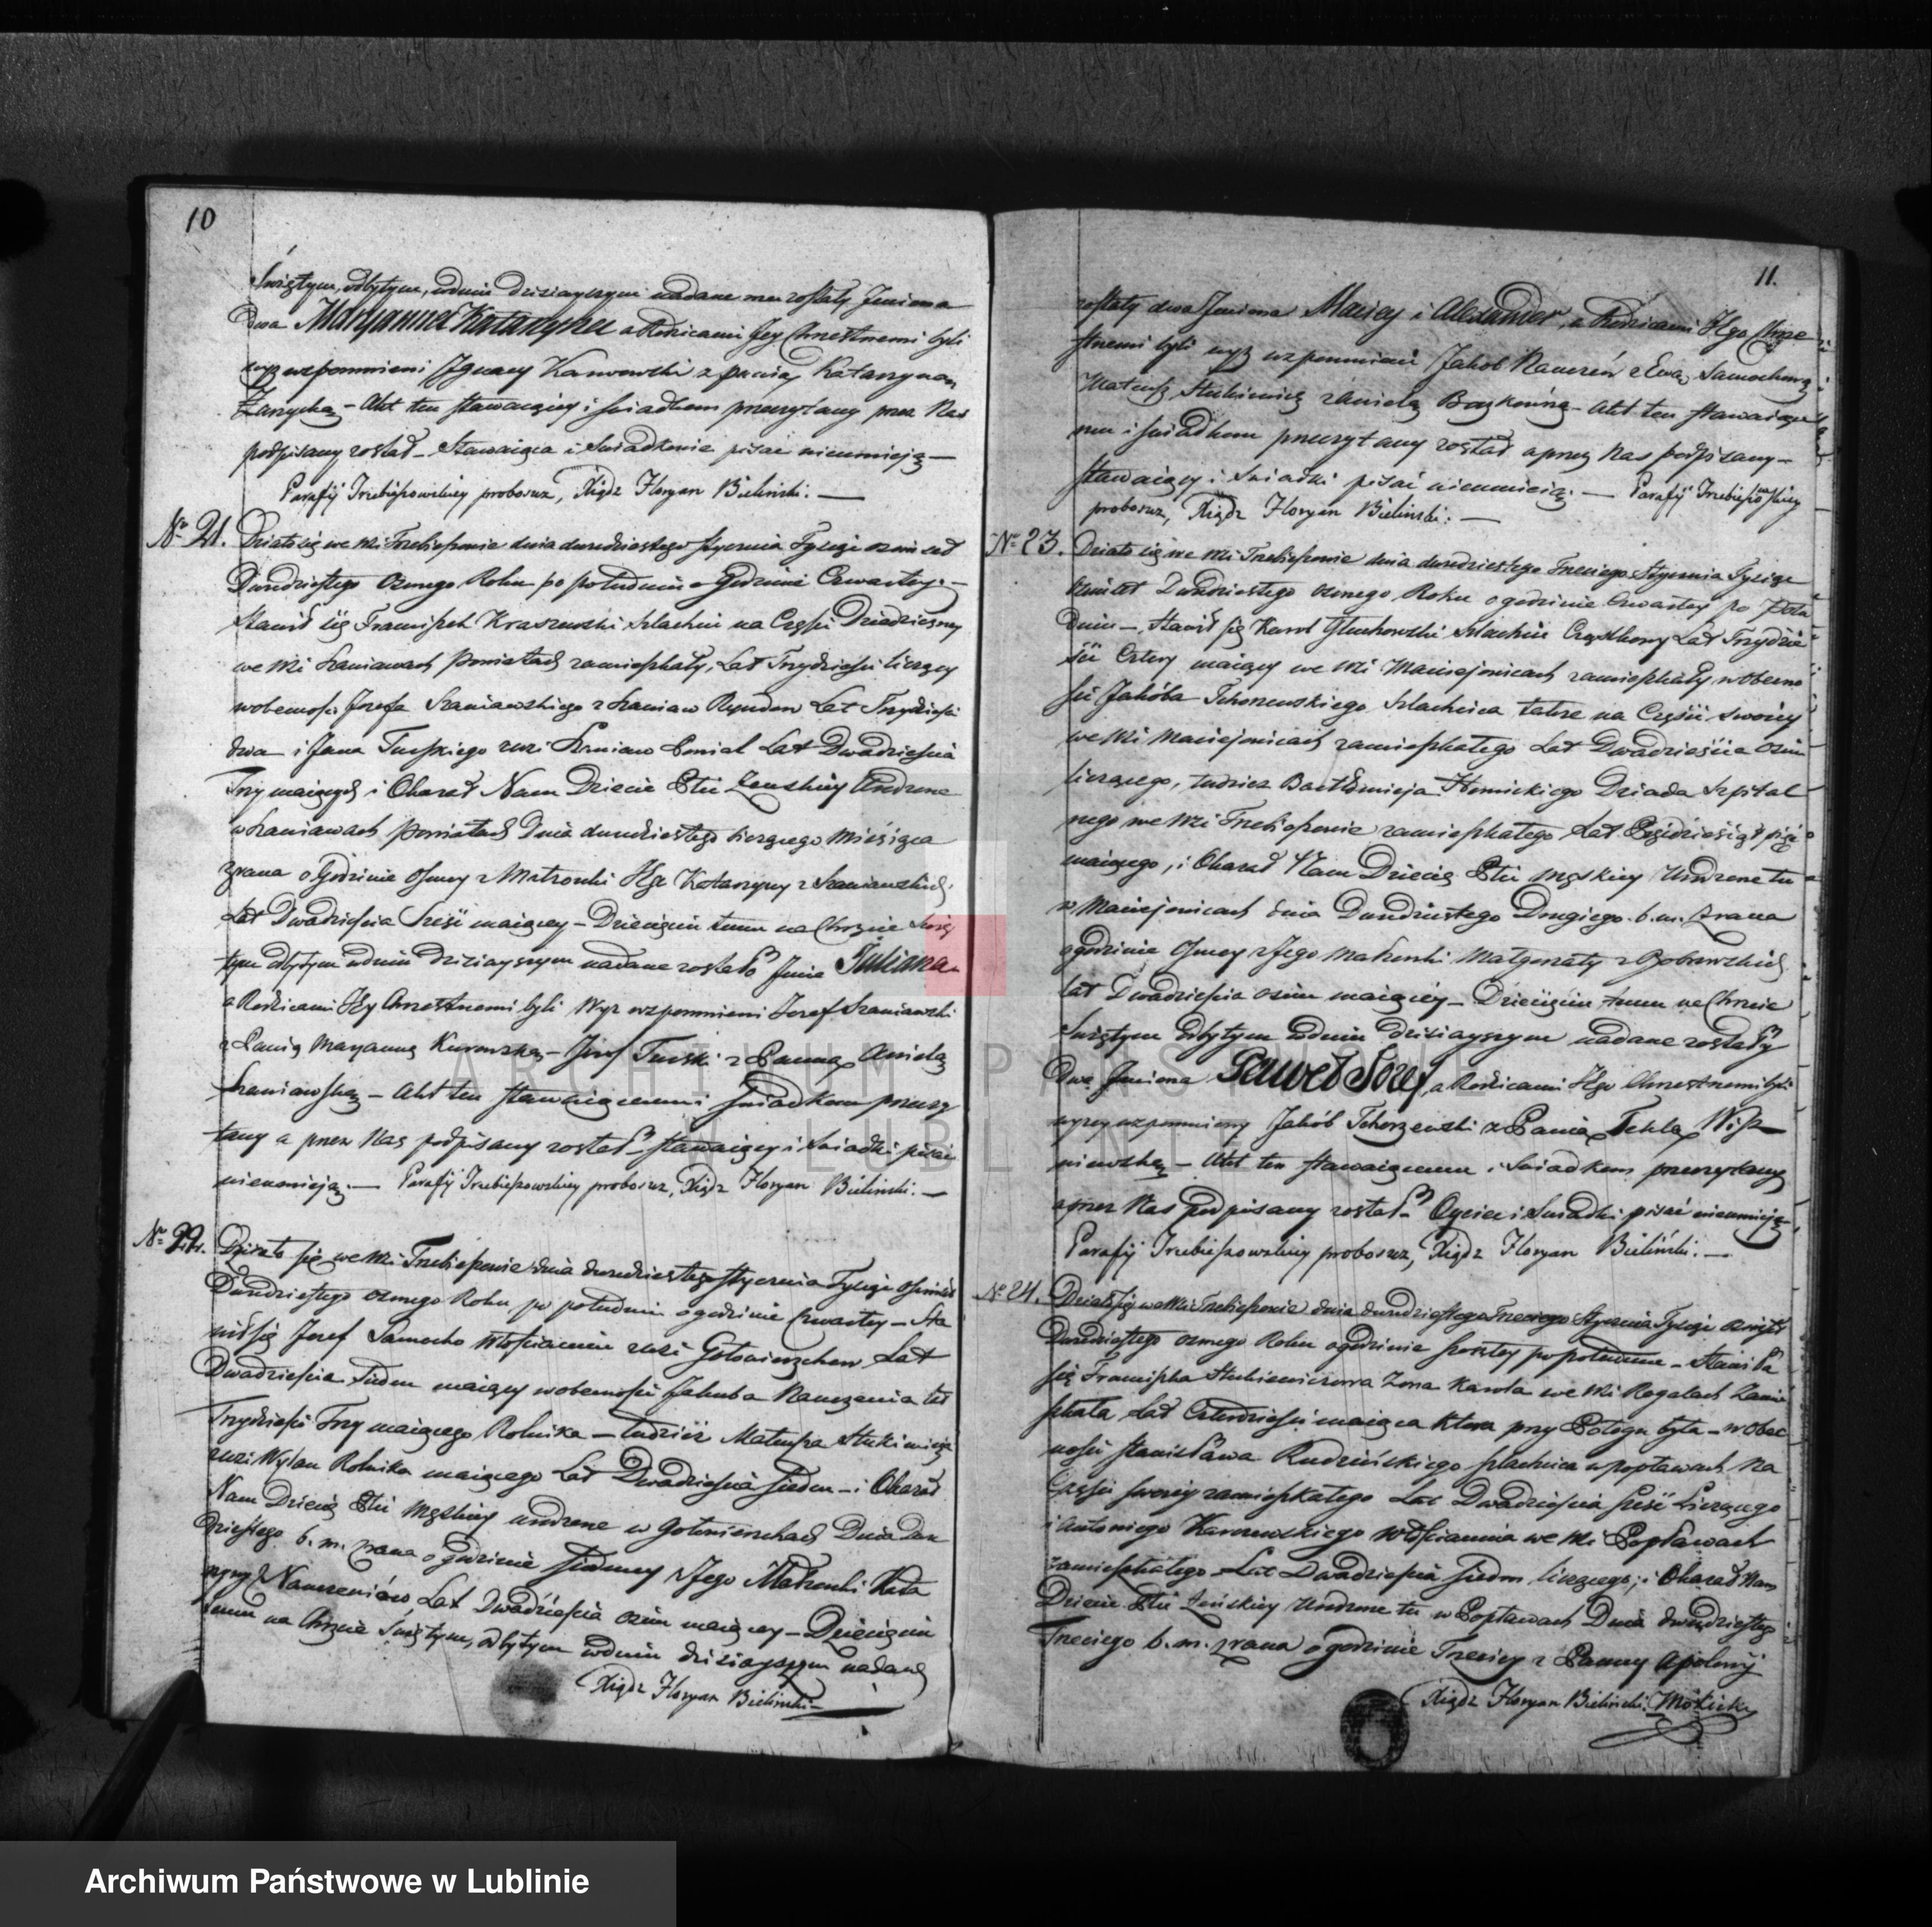 10
Świętym, odbytym, w dniu dzisiayszym nadane mu zostały Jmiona
Dwa Maryanna Katarzyna a Rodzicami Jey Chrzestnemi byli
wyz wspomnieni Jgnacy Karwowski z panią Katarzyną
– Akt ten stawaiącey i świadkom przeczytany przez Nas
podpisany został – Stawaiąca i Swiadkowie pisać nieumieią –
Parafij Trzebieszowskiey proboszcz, Xiądz Floryan Bieliński. —
No 21. Działo się we Wsi Trzebieszowie dnia dwudziestego stycznia Tysiąc osmset
Dwudziestego Osmego Roku po południu o Godzinie Czwartey. –
Stawił się Franciszek Kraszewski Szlachcic na Części Dziedziczney
we Wsi Szaniawach Poniatach zamieszkały, Lat Trzydzieści liczący
w obecności Jozefa Szaniawskiego z Szaniaw Lat Trzydzieści
dwa i Jana Turskiego z wsi Szaniaw Poniat Lat Dwadzieścia
Trzy maiących i Okazał Nam Dziecie Płci Zenskiey Urodzone
w Szaniawach Poniatach Dnia dwudziestego bierzącego Miesiąca
zrana o Godzinie Osmey z Matzonki Jgo Katarzyny z Szaniawskich
Lat Dwadzieścia Sześć maiącey – Dziecięciu temu na Chrzcie Swię
tym odbytym w dniu dzisiayszym nadane zostało Jmie Juliana
a Rodzicami Jey Chrzestnemi byli Wyz wspomnieni Jozef Szaniawski
z Panią Maryanną Kurowską – Jozef Turski z Panną Anielą
Szaniawską – Akt ten stawaiącemu i Świadkom przeczy
tany a przez Nas podpisany został – stawaiący i Swiadki pisać
nieumieją. — Parafij Trzebieszowskiey proboszcz, Xiądz Floryan Bieliński. —
No 22. Działo się we Wsi Trzebieszowie dnia dwudziestego stycznia Tysiąc osmset
Dwudziestego osmego Roku po południu o godzinie Czwartey – Sta
wił się Jozef Samocho Włościanin z wsi Gołowierzchow Lat
Dwadzieścia Siedm maiący w obecności Jakuba Nauczenia lat
Trzydzieści Trzy maiącego Rolnika – tudziesz Mateusza
z wsi Rolnika maiącego Lat Dwadzieścia siedm – i Okazał
Nam Dziecię Płci Męskiey urodzone w Gołowierzchach Dnia Dwu
dziestego b. m. zrana o godzinie siodmey z Jego Małzonki Kata
rzyny z Lat Dwadzieścia osim maiącey – Dziecięciu
temu na Chrzcie Świętym, odbytym w dniu dzisiayszym nadane
Xiądz Floryan Bieliński –
11.
zostały dwa Jmiona Maciey i Alexander, a Rodzicami Jego Chrze
stnemi byli wyz wspomnieni Jakob z Ewą Samochową
Mateusz z Anielą – Akt ten stawaiące
mu i świadkom przeczytany został a przez Nas podpisany –
stawaiący i Swiadki pisać nieumieią. — Parafij Trzebieszowskiey
proboszcz, Xiądz Floryan Bieliński. —
No 23. Działo się we Wsi Trzebieszowie dnia dwudziestego Trzeciego Stycznia Tysiąc
osmset Dwudziestego osmego Roku o godzinie Czwartey po Połu
dniu –, Stawił się Karol Głuchowski Szlachcic Cząstkowy Lat Trzydzie
ści Cztery maiący we Wsi Maciejowicach zamieszkały w obecno
ści Jakóba Tchorzewskiego Szlachcica także na Części swoiey
we Wsi Maciejowicach zamieszkałego Lat Dwadzieścia osim
liczącego, tudziesz Bartłomieja Dziada Szpital
nego we Wsi Trzebieszowie zamieszkałego Lat pięć
maiącego, i Okazał Nam Dziecię Płci męskiey Urodzone tu
w Maciejowicach dnia Dwudziestego Drugiego b. m. zrana
o godzinie Osmey z Jego małzonki Małgorzaty z
lat Dwadzieścia osim maiącey – Dziecięciu temu na Chrzcie
Świętym Odbytym w dniu dzisiayszym nadane zostały
Dwa Jmiona Paweł Jozef, a Rodzicami Jego Chrzestnemi byli
wyzey wspomniony Jakób Tchorzewski z Panią Teklą Wiśz
niewską – Akt ten stawaiącemu i Swiadkom przeczytany
a przez Nas podpisany został – Oyciec i Swiadki pisać nieumieją –
Parafij Trzebieszowskiey proboszcz, Xiądz Floryan Bieliński. —
No 24. Działo się we Wsi Trzebieszowie dnia dwudziestego Trzeciego Stycznia Tysiąc osmset
Dwudziestego osmego Roku o godzinie szostey po południu – Stawiła
się Franciszka Zona Karola we Wsi Rogalach Zamie
szkała, Lat Czterdzieści maiąca Ktora przy Pologu była – w obec
ności Stanisława Rudzińskiego szlachcica w popławach Na
Części swoiey zamieszkałego Lat Dwadzieścia Sześć Liczącego
i Antoniego Włościanina we Wsi Popławach
zamieszkałego Lat Dwadzieścia siedm liczącego; i Okazał Nam
Dziecie Płci Zenskiey Urodzone tu w Popławach Dnia dwudziestego
Trzeciego b. m. zrana o godzinie Trzeciey z Panny Apolonij
Xiądz Floryan Bieliński.
ARCHIWUM PAŃSTWOWE
W LUBLINIE
Archiwum Państwowe w Lublinie